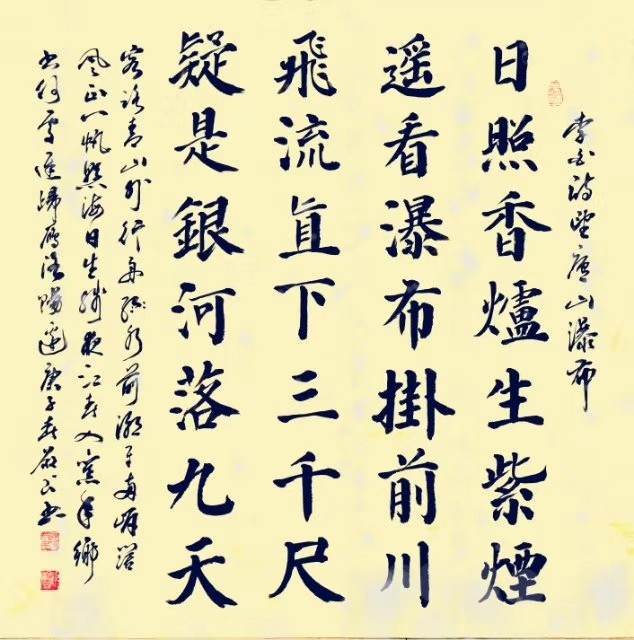 李白詩望廬山瀑布
日照香爐生紫煙
遥看瀑布掛前川
飛流直下三千尺
疑是銀河落九天
客路青山外行舟綠水前潮平兩岸闊
風正一帆懸海日生殘夜江春入舊年鄉
書何處達歸雁洛陽邊庚子春書